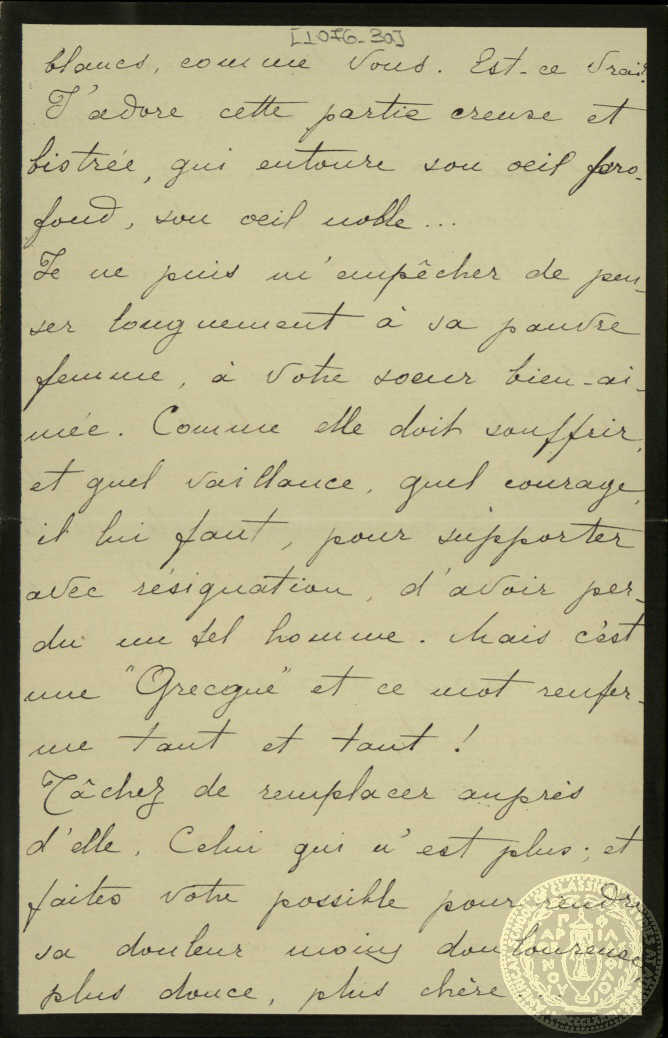 [1076-30]
blancs, comme vous. Est-ce vrai?
J'adore cette partie creuse et
bistrée, qui entoure son oeil pro-
fond, son oeil noble...
Je ne puis m'empêcher de pen-
ser longuement à sa pauvre
femme, à votre soeur bien-ai-
mée. Comme elle doit souffrir,
et quel vaillance, quel courage,
il lui faut, pour supporter
avec résignation, d'avoir per-
du un tel homme. Mais c'est
une "Grecque" et ce mot renfer-
me tant et tant!
Tâchez de remplacer auprès
d'elle, Celui qui n'est plus; et
faites votre possible pour rendre
sa douleur moins douloureuse,
plus douce, plus chère...